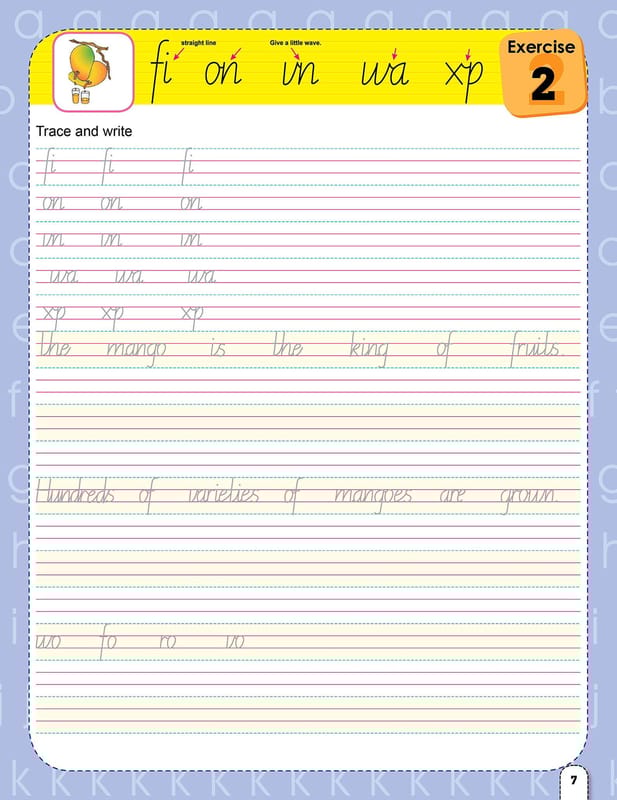 straight line Give a little wave.
fi on vn wa xp
Exercise
2
Trace and write
fi fi fi
on on on
vn vn vn
wa wa wa
xp xp xp
the mango is the king of fruits.
Hundreds of varieties of mangoes are grown.
wo fo ro vo
7